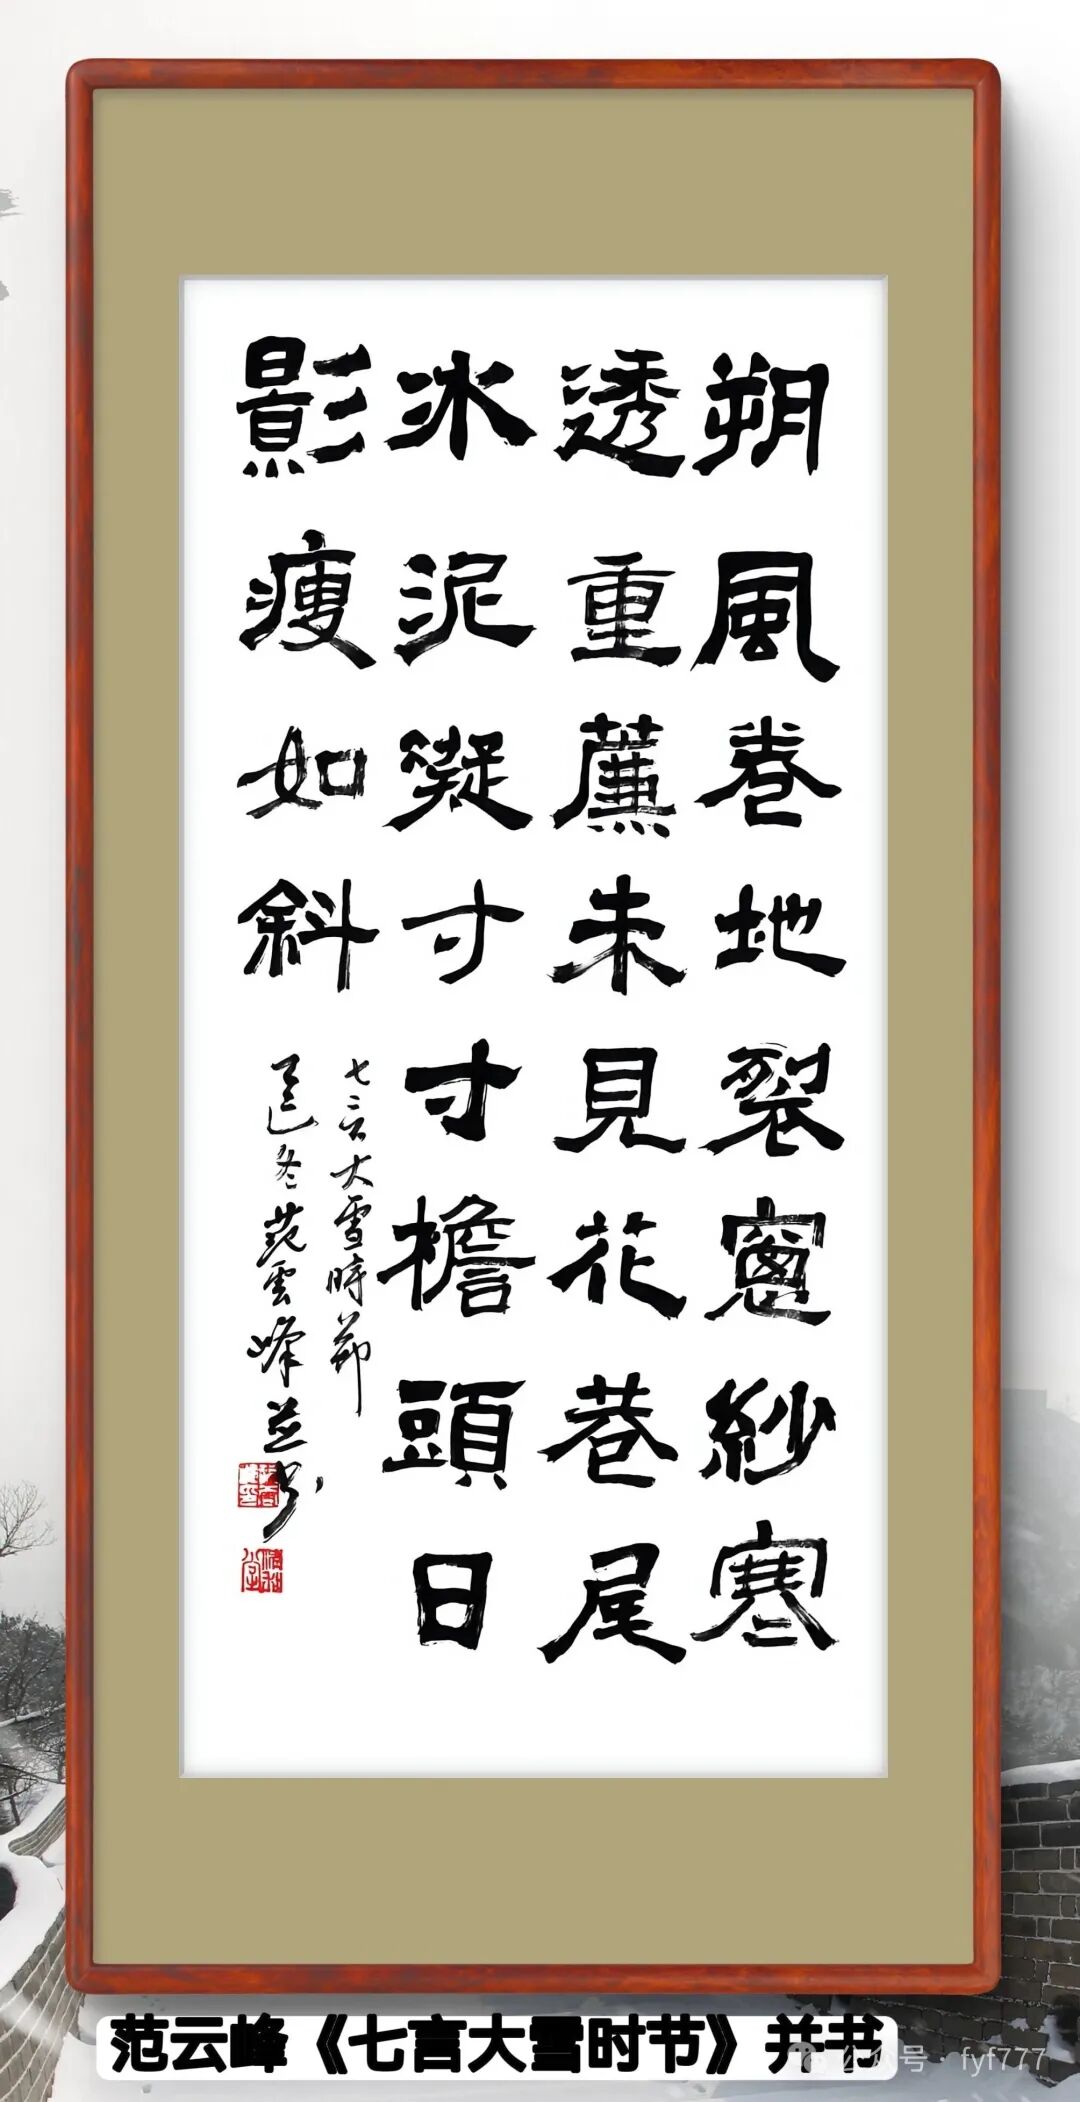 朔風卷地裂窻紗寒
透重薕未見花巷尾
冰泥凝寸寸檐頭日
影瘦如斜
七言大雪時節
乙巳冬范雲峰並书
范云峰《七言大雪时节》并书
公众号 · fyf777